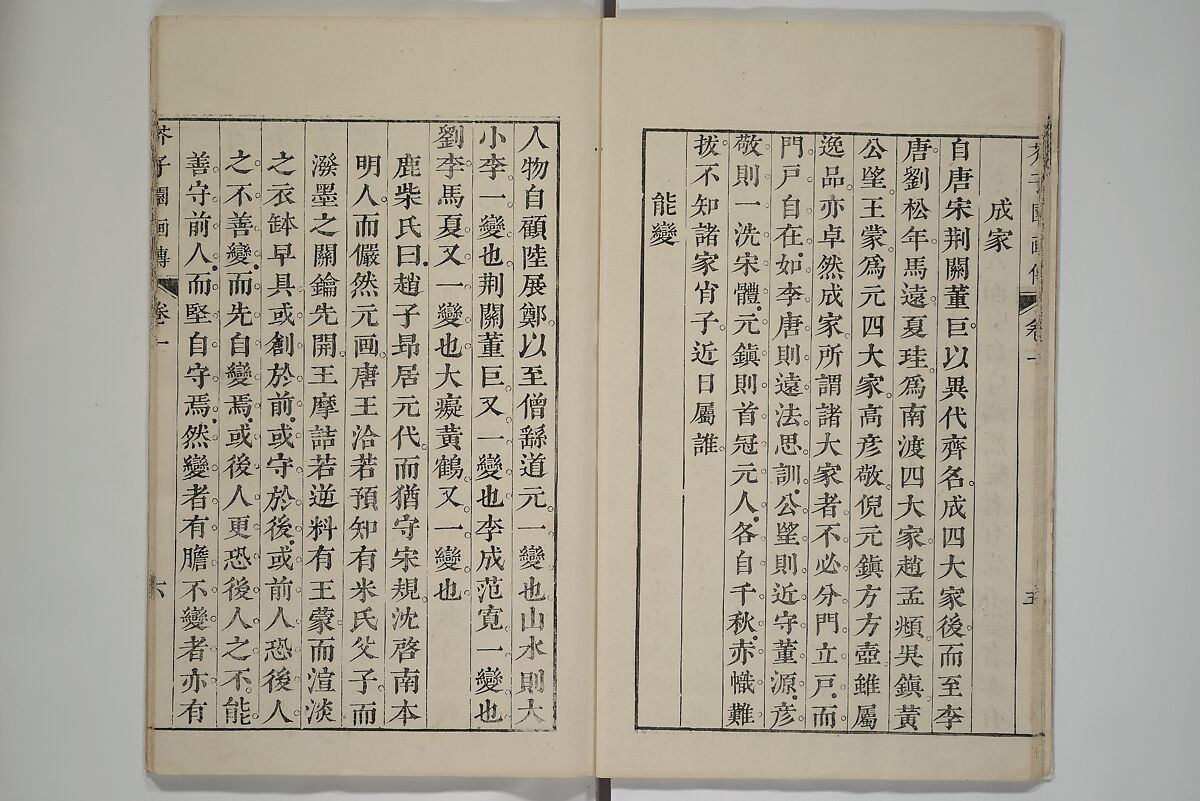 成家
自唐宋荆關董巨以異代齊名成四大家後而至李
唐劉松年馬遠夏珪爲南渡四大家趙孟頫吳鎮黃
公望王蒙爲元四大家高彦敬倪元鎮方方壺雖屬
逸品亦卓然成家所謂諸大家者不必分門立戶而
門戶自在如李唐則遠法思訓公望則近守董源彦
敬則一洗宋體元鎮則首冠元人各自千秋赤幟難
拔不知諸家肯子近日屬誰
能變
人物自顧陸展鄭以至僧繇道元一變也山水則大
小李一變也荆關董巨又一變也李成范寬一變也
劉李馬夏又一變也大癡黃鶴又一變也
鹿柴氏曰趙子昻居元代而猶守宋規沈啓南本
明人而儼然元画唐王洽若預知有米氏父子而
潑墨之關鑰先開王摩詰若逆料有王蒙而渲淡
之衣鉢早具或創於前或守於後或前人恐後人
之不善變而先自變焉或後人更恐後人之不能
善守前人而堅自守焉然變者有膽不變者亦有
芥子園画傳 卷一 六